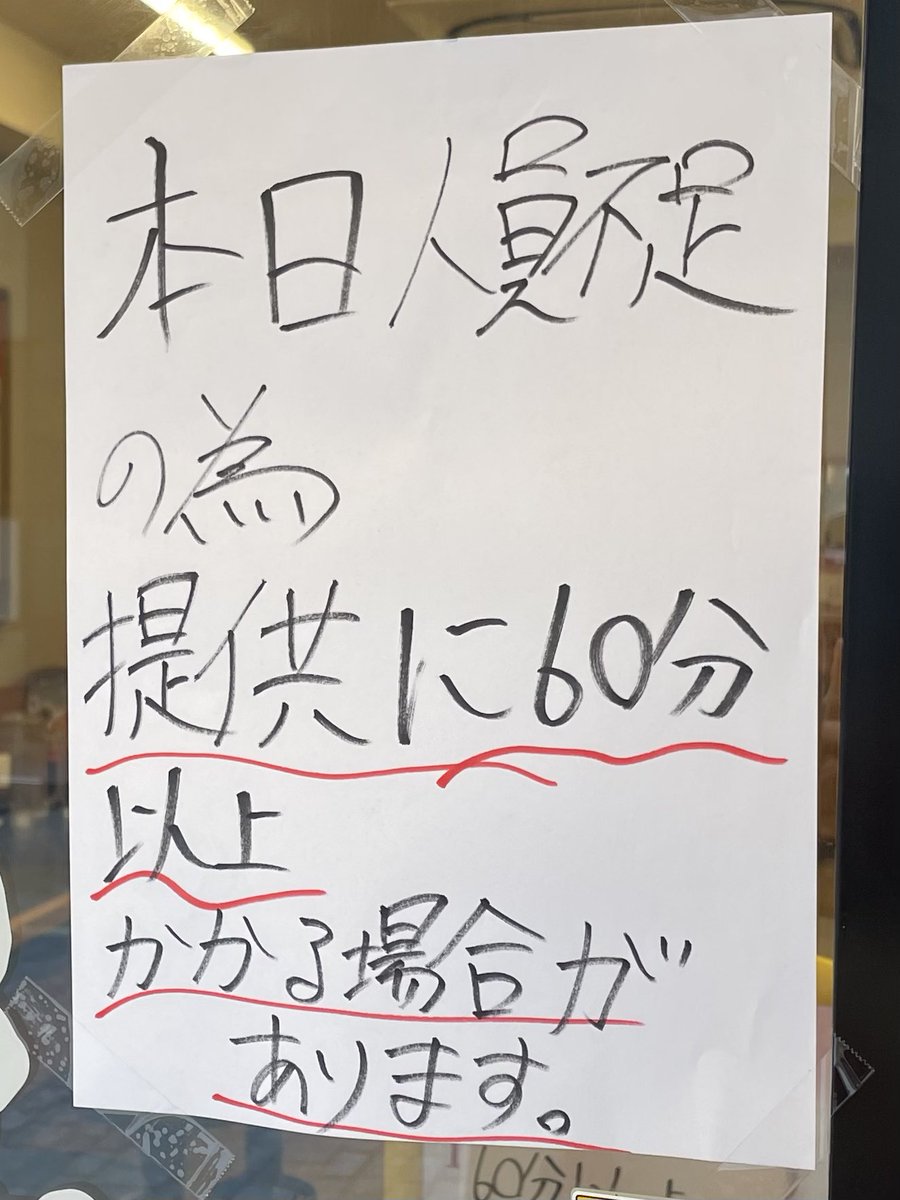 本日人員不足
の為
提供に60分
以上
かかる場合が
あります。
60分以上